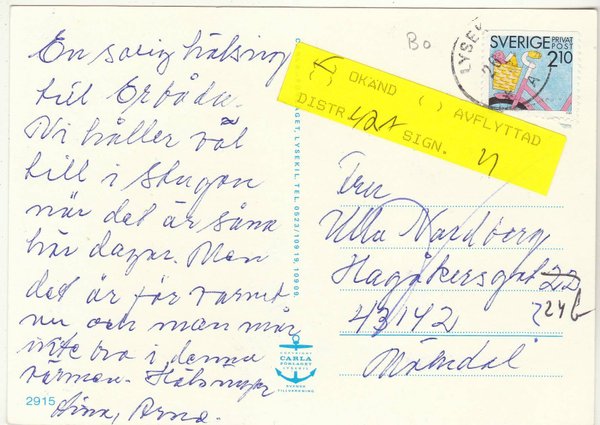 En solig hälsning
till Er båda.
Vi håller väl
till i stugan
när det är såna
här dagar. Men
det är för varmt
nu och man mår
inte bra i denna
värmen. Hälsningar
Arne.
2915
COPYRIGHT
CARLA
FÖRLAGET
LYSEKIL
SVENSK
TILLVERKNING
LYSEKIL, TEL. 0523/10919, 10909
Bo
LYSE
SVERIGE PRIVAT
POST
2.10
( ) OKÄND ( ) AVFLYTTAD
DISTR 42A SIGN.
Fru
Ulla Nordberg
Hagåkersgat 22
24b
43142
Mölndal